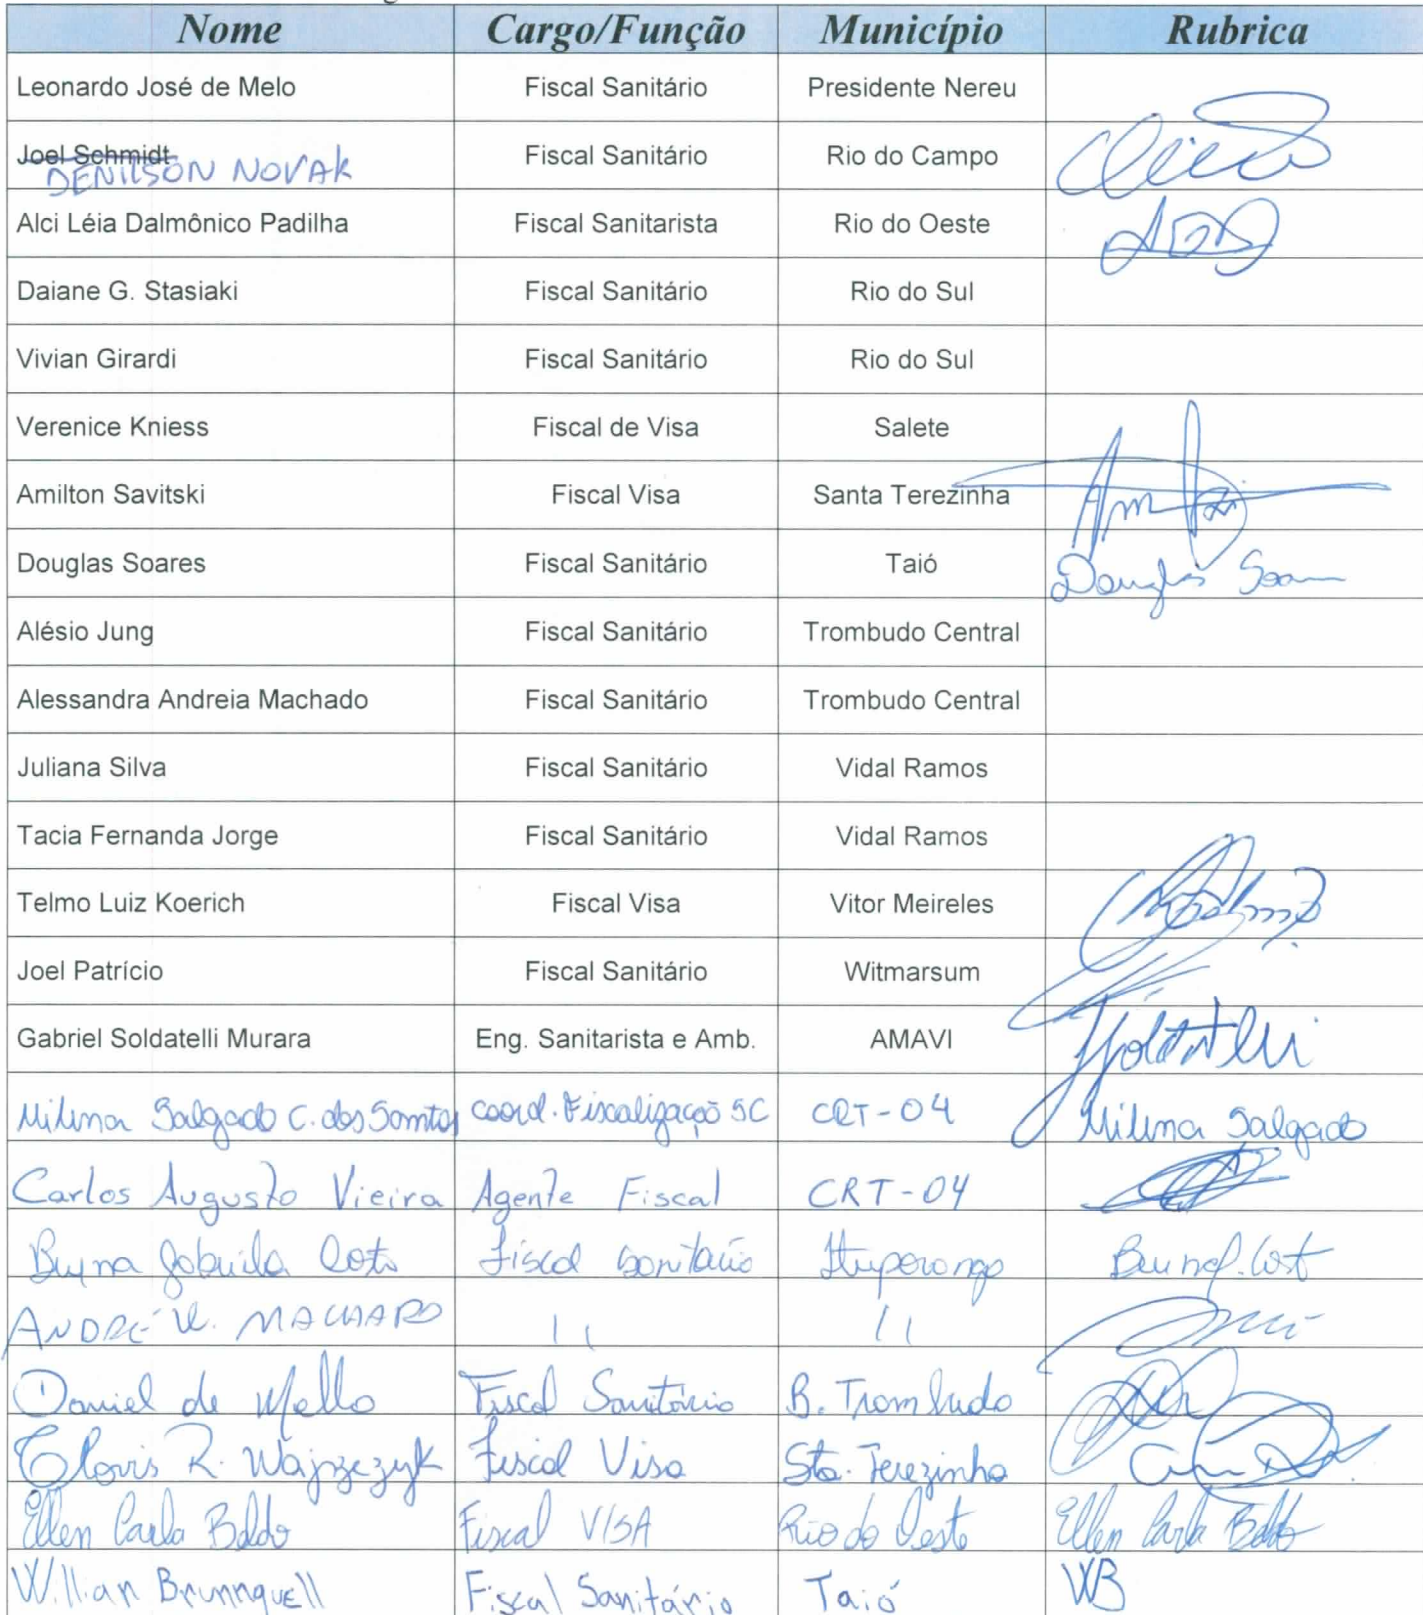 Nome Cargo/Função Município Rubrica
Leonardo José de Melo Fiscal Sanitário Presidente Nereu
Joel Schmidt Fiscal Sanitário Rio do Campo
DENILSON NOVAK
Alci Léia Dalmônico Padilha Fiscal Sanitarista Rio do Oeste
Daiane G. Stasiaki Fiscal Sanitário Rio do Sul
Vivian Girardi Fiscal Sanitário Rio do Sul
Verenice Kniess Fiscal de Visa Salete
Amilton Savitski Fiscal Visa Santa Terezinha
Douglas Soares Fiscal Sanitário Taió Douglas
Alésio Jung Fiscal Sanitário Trombudo Central
Alessandra Andreia Machado Fiscal Sanitário Trombudo Central
Juliana Silva Fiscal Sanitário Vidal Ramos
Tacia Fernanda Jorge Fiscal Sanitário Vidal Ramos
Telmo Luiz Koerich Fiscal Visa Vitor Meireles
Joel Patrício Fiscal Sanitário Witmarsum
Gabriel Soldatelli Murara Eng. Sanitarista e Amb. AMAVI Soldatelli
Milena Salgado C. dos Santos Coord. Fiscalização SC CRT-04 Milena Salgado
Carlos Augusto Vieira Agente Fiscal CRT-04
Bruna Gabriela Fiscal Sanitário Ituporanga
ANDRÉ MACHADO 11 11
Daniel de Mello Fiscal Sanitário B. Trombudo
Clovis R. Wajzczyk Fiscal Visa Sta. Terezinha
Ellen Carla Boldo Fiscal VISA Rio do Oeste Ellen Carla Boldo
Willian Brunnquell Fiscal Sanitário Taió WB